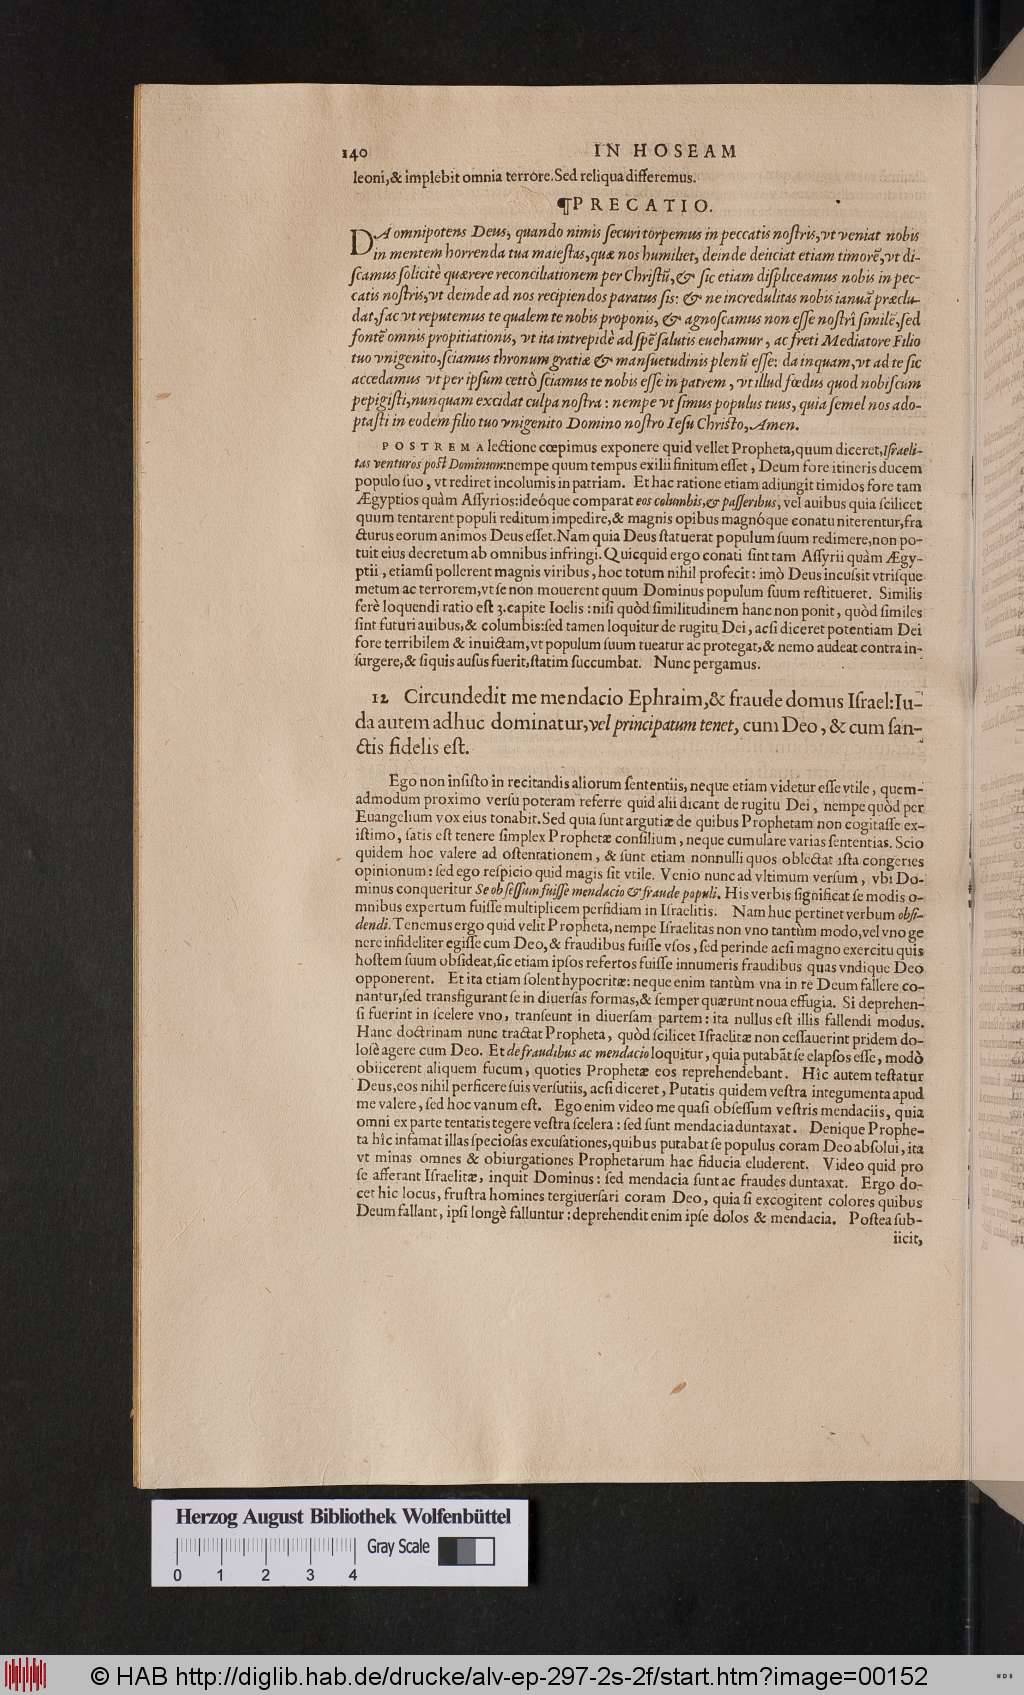 140 IN HOSEAM
leoni,& implebit omnia terrore.Sed reliqua differemus.
¶PRECATIO.
DA omnipotens Deus, quando nimis ſecuri torpemus in peccatis noſtris,vt veniat nobis
in mentem horrenda tua maieſtas,quæ nos humiliet, deinde deiiciat etiam timorē,vt di-
ſcamus ſolicitè quærere reconciliationem per Chriſtū,& ſic etiam diſpliceamus nobis in pec-
catis noſtris,vt deinde ad nos recipiendos paratus ſis: & ne incredulitas nobis ianuā præclu-
dat,fac vt reputemus te qualem te nobis proponis, & agnoſcamus non eſſe noſtrî ſimilē,ſed
fontē omnis propitiationis, vt ita intrepidè ad ſpē ſalutis euehamur, ac freti Mediatore Filio
tuo vnigenito,ſciamus thronum gratiæ & manſuetudinis plenū eſſe: da inquam,vt ad te ſic
accedamus vt per ipſum certò ſciamus te nobis eſſe in patrem, vt illud fœdus quod nobiſcum
pepigiſti,nunquam excidat culpa noſtra: nempe vt ſimus populus tuus, quia ſemel nos ado-
ptaſti in eodem filio tuo vnigenito Domino noſtro Ieſu Chriſto, Amen.
POSTREMA lectione cœpimus exponere quid vellet Propheta,quum diceret,Iſraeli-
tas venturos poſt Dominum:nempe quum tempus exilii finitum eſſet, Deum fore itineris ducem
populo ſuo, vt rediret incolumis in patriam. Et hac ratione etiam adiungit timidos fore tam
Ægyptios quàm Aſſyrios:ideóque comparat eos columbis,& paſſeribus, vel auibus quia ſcilicet
quum tentarent populi reditum impedire,& magnis opibus magnóque conatu niterentur,fra
cturus eorum animos Deus eſſet.Nam quia Deus ſtatuerat populum ſuum redimere,non po-
tuit eius decretum ab omnibus infringi. Quicquid ergo conati ſint tam Aſſyrii quàm Ægy-
ptii, etiamſi pollerent magnis viribus, hoc totum nihil profecit: imò Deus incuſsit vtriſque
metum ac terrorem,vt ſe non mouerent quum Dominus populum ſuum reſtitueret. Similis
ferè loquendi ratio eſt 3.capite Ioelis: niſi quòd ſimilitudinem hanc non ponit, quòd ſimiles
ſint futuri auibus,& columbis:ſed tamen loquitur de rugitu Dei, acſi diceret potentiam Dei
fore terribilem & inuictam,vt populum ſuum tueatur ac protegat,& nemo audeat contra in-
ſurgere,& ſiquis auſus fuerit,ſtatim ſuccumbat. Nunc pergamus.
12 Circundedit me mendacio Ephraim,& fraude domus Iſrael:Iu-
da autem adhuc dominatur,vel principatum tenet, cum Deo, & cum ſan-
ctis fidelis eſt.
Ego non inſiſto in recitandis aliorum ſententiis, neque etiam videtur eſſe vtile, quem-
admodum proximo verſu poteram referre quid alii dicant de rugitu Dei, nempe quòd per
Euangelium vox eius tonabit.Sed quia ſunt argutiæ de quibus Prophetam non cogitaſſe ex-
iſtimo, ſatis eſt tenere ſimplex Prophetæ conſilium, neque cumulare varias ſententias. Scio
quidem hoc valere ad oſtentationem, & ſunt etiam nonnulli quos oblectat iſta congeries
opinionum: ſed ego reſpicio quid magis ſit vtile. Venio nunc ad vltimum verſum, vbi Do-
minus conqueritur Se obſeſſum fuiſſe mendacio & fraude populi. His verbis ſignificat ſe modis o-
mnibus expertum fuiſſe multiplicem perfidiam in Iſraelitis. Nam huc pertinet verbum obſi-
dendi. Tenemus ergo quid velit Propheta, nempe Iſraelitas non vno tantùm modo,vel vno ge
nere infideliter egiſſe cum Deo,& fraudibus fuiſſe vſos, ſed perinde acſi magno exercitu quis
hoſtem ſuum obſideat,ſic etiam ipſos refertos fuiſſe innumeris fraudibus quas vndique Deo
opponerent. Et ita etiam ſolent hypocritæ: neque enim tantùm vna in re Deum fallere co-
nantur,ſed transfigurant ſe in diuerſas formas,& ſemper quærunt noua effugia. Si deprehen-
ſi fuerint in ſcelere vno, tranſeunt in diuerſam partem: ita nullus eſt illis fallendi modus.
Hanc doctrinam nunc tractat Propheta, quòd ſcilicet Iſraelitæ non ceſſauerint pridem do-
loſè agere cum Deo. Et de fraudibus ac mendacio loquitur, quia putabāt ſe elapſos eſſe, modò
obiicerent aliquem fucum, quoties Prophetæ eos reprehendebant. Hic autem teſtatur
Deus,eos nihil perficere ſuis verſutiis, acſi diceret, Putatis quidem veſtra integumenta apud
me valere, ſed hoc vanum eſt. Ego enim video me quaſi obſeſſum veſtris mendaciis, quia
omni ex parte tentatis tegere veſtra ſcelera: ſed ſunt mendacia duntaxat. Denique Prophe-
ta hîc infamat illas ſpecioſas excuſationes,quibus putabat ſe populus coram Deo abſolui, ita
vt minas omnes & obiurgationes Prophetarum hac fiducia eluderent. Video quid pro
ſe afferant Iſraelitæ, inquit Dominus: ſed mendacia ſunt ac fraudes duntaxat. Ergo do-
cet hic locus, fruſtra homines tergiuerſari coram Deo, quia ſi excogitent colores quibus
Deum fallant, ipſi longè falluntur: deprehendit enim ipſe dolos & mendacia. Poſtea ſub-
iicit,
Herzog August Bibliothek Wolfenbüttel
Gray Scale
0 1 2 3 4
© HAB http://diglib.hab.de/drucke/alv-ep-297-2s-2f/start.htm?image=00152